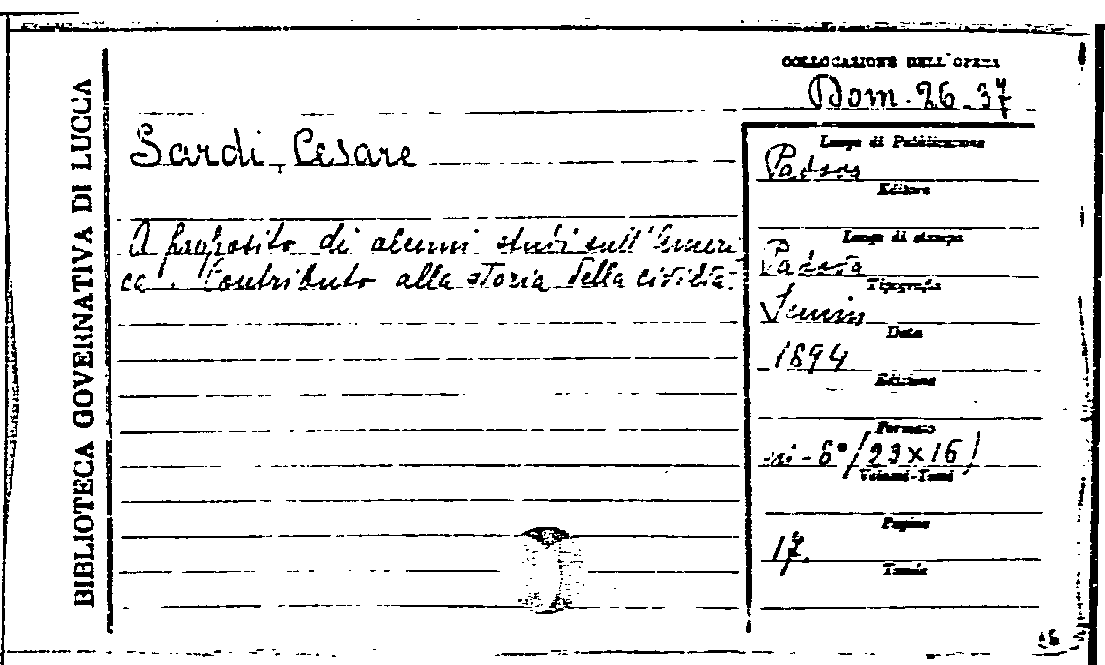 BIBLIOTECA GOVERNATIVA DI LUCCA
COLLOCAZIONE DELL'OPERA
Dom. 26.37
Sardi, Cesare
A proposito di alcuni studi sull'Ameri
ca. Contributo alla storia della civiltà.
Luogo di Pubblicazione
Padova
Editore
Luogo di stampa
Padova
Tipografia
Data
1894
Edizione
Formato
in-8°/23x16/
Volumi-Tomi
Pagine
17.
Tavole